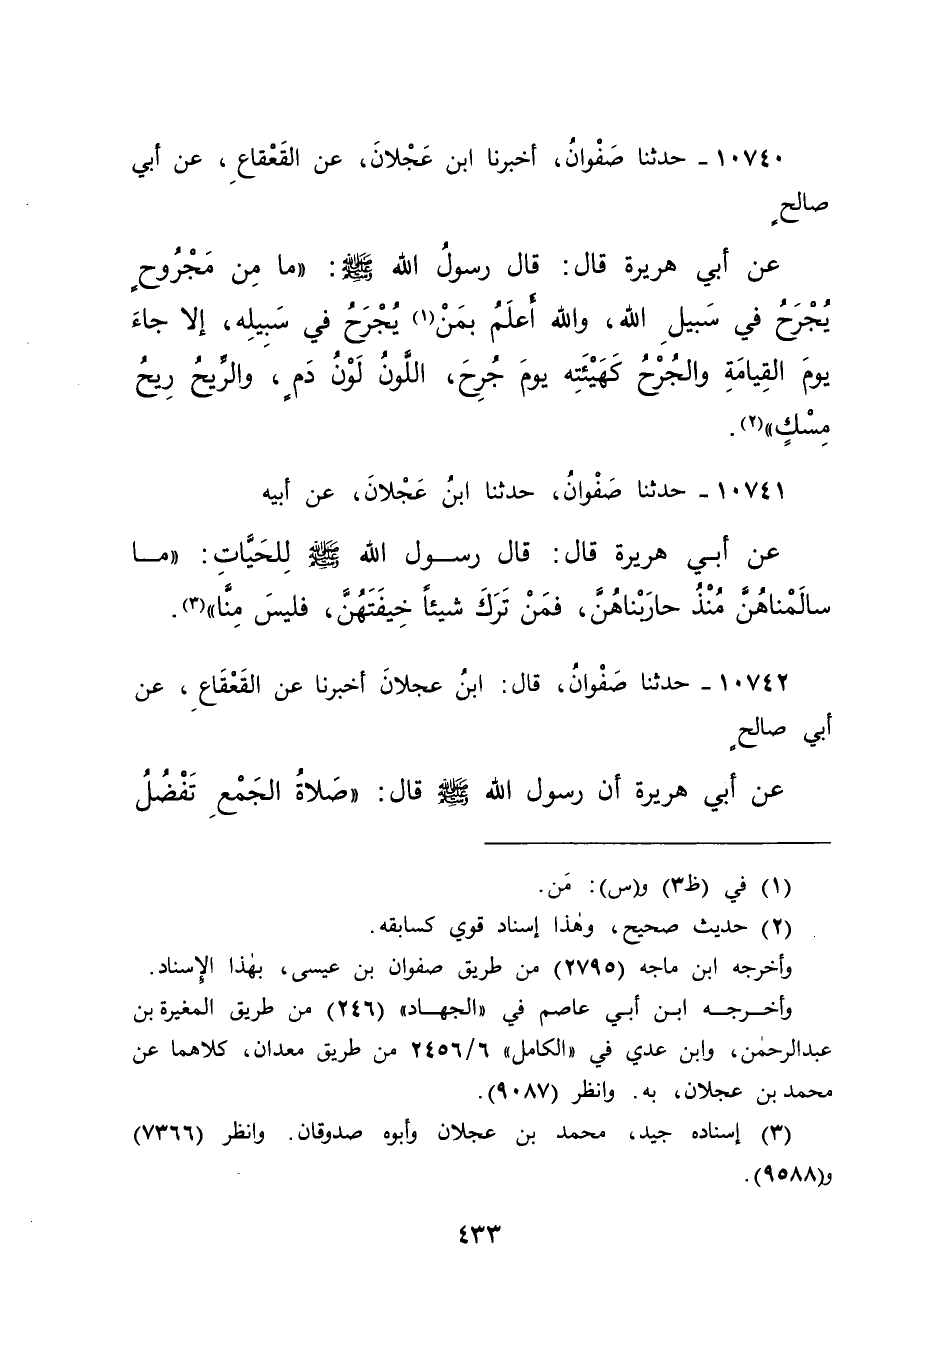 ١٠٧٤٠ - حدثنا صَفْوانُ، أخبرنا ابن عَجْلانَ، عن القَعْقاعِ، عن أبي
صالحٍ
عن أبي هريرة قال: قال رسولُ الله ﷺ: «ما مِن مَجْرُوحٍ
يُجْرَحُ في سَبيلِ الله، والله أَعلَمُ بمَنْ(١) يُجْرَحُ في سَبِيلِه، إلا جاءَ
يومَ القِيامَةِ والجُرْحُ كَهَيْئَتِه يومَ جُرِحَ، اللَّونُ لَوْنُ دَمٍ، والرِّيحُ رِيحُ
مِسْكٍ»(٢).
١٠٧٤١ - حدثنا صَفْوانُ، حدثنا ابنُ عَجْلانَ، عن أبيه
عن أبي هريرة قال: قال رسول الله ﷺ لِلحَيَّاتِ: «ما
سالَمْناهُنَّ مُنْذُ حارَبْناهُنَّ، فمَنْ تَرَكَ شيئاً خِيفَتَهُنَّ، فليسَ مِنَّا»(٣).
١٠٧٤٢ - حدثنا صَفْوانُ، قال: ابنُ عجلانَ أخبرنا عن القَعْقَاعِ، عن
أبي صالحٍ
عن أبي هريرة أن رسول الله ﷺ قال: «صَلاةُ الجَمْعِ تَفْضُلُ
(١) في (ظ٣) و(س): مَن.
(٢) حديث صحيح، وهٰذا إسناد قوي كسابقه.
وأخرجه ابن ماجه (٢٧٩٥) من طريق صفوان بن عيسى، بهٰذا الإِسناد.
وأخرجه ابن أبي عاصم في «الجهاد» (٢٤٦) من طريق المغيرة بن
عبدالرحمٰن، وابن عدي في «الكامل» ٢٤٥٦/٦ من طريق معدان، كلاهما عن
محمد بن عجلان، به. وانظر (٩٠٨٧).
(٣) إسناده جيد، محمد بن عجلان وأبوه صدوقان. وانظر (٧٣٦٦)
و(٩٥٨٨).
٤٣٣